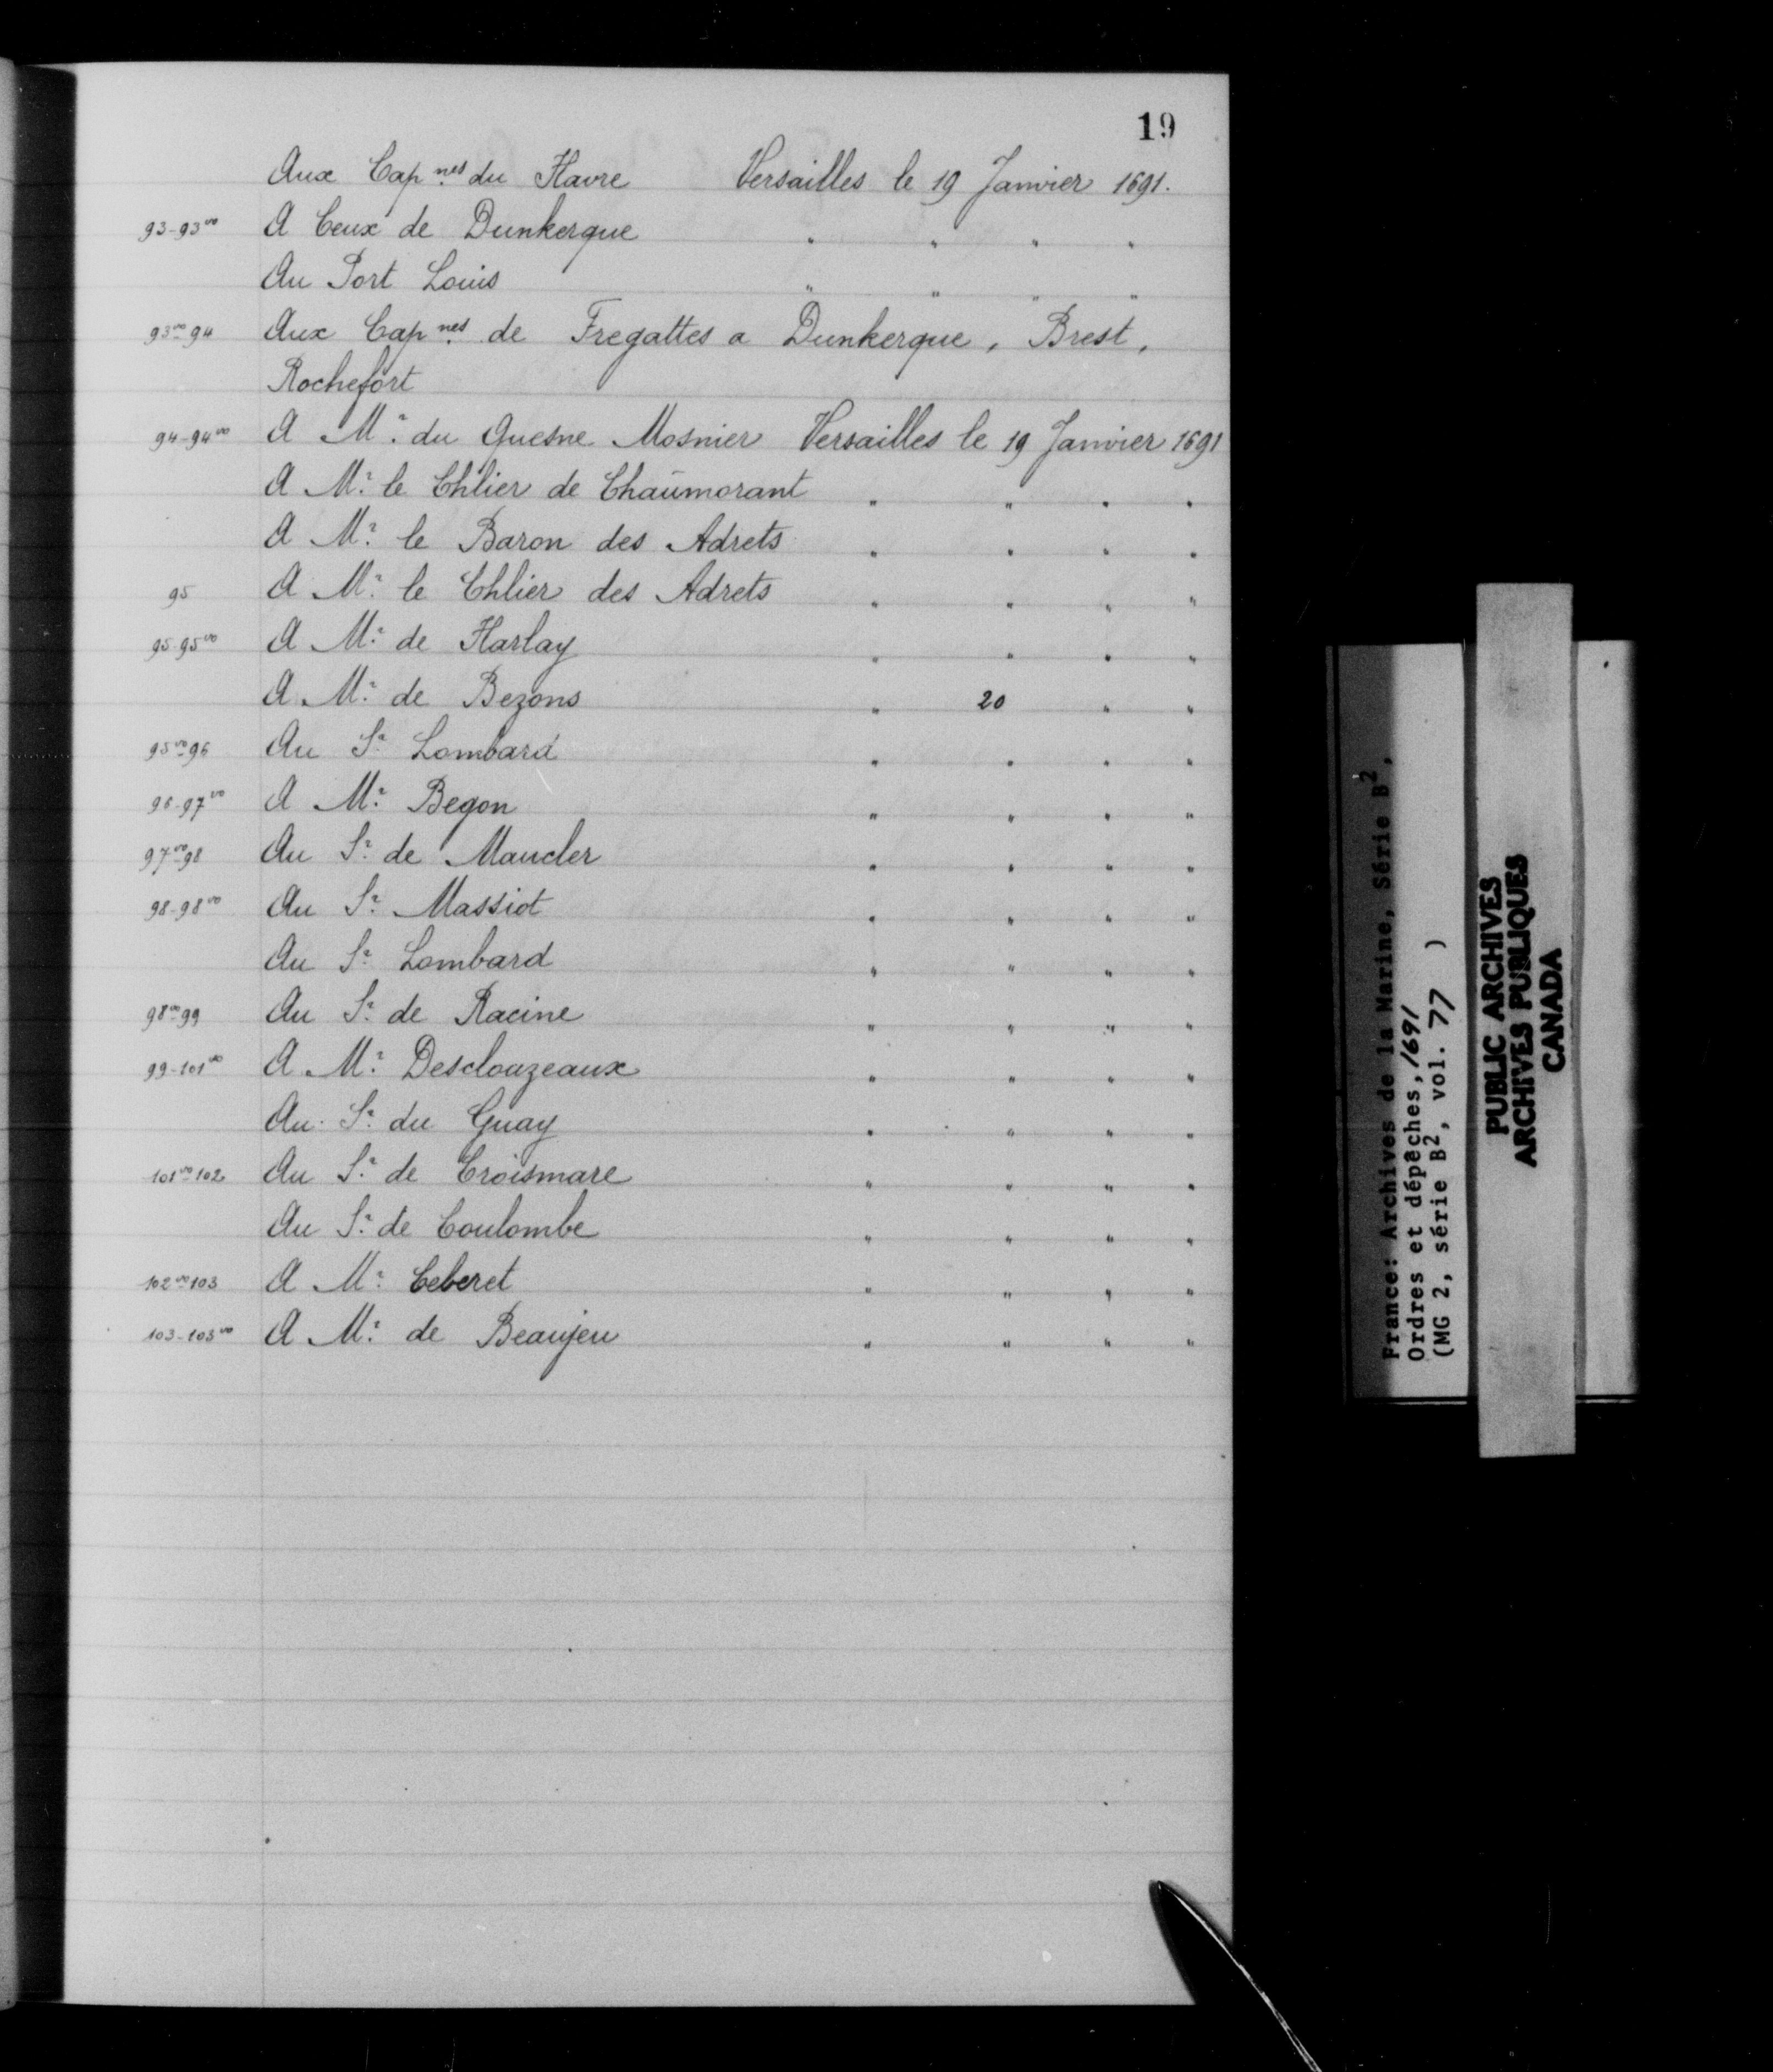 19
Aux Cap.nes du Havre Versailles le 19 Janvier 1691.
93-93vo A Ceux de Dunkerque " " " "
Au Port Louis " " " "
93vo-94 Aux Cap.nes de Fregattes a Dunkerque, Brest,
Rochefort
94-94vo A Mr. du Quesne Mosnier Versailles le 19 Janvier 1691
A Mr. le Chlier de Chaumorant " " " "
A Mr. le Baron des Adrets " " " "
95 A Mr. le Chlier des Adrets " " " "
95-95vo A Mr. de Harlay " " " "
A Mr. de Bezons " 20 " "
95vo-96 Au Sr. Lombard " " " "
96-97vo A Mr. Begon " " " "
97vo-98 Au Sr. de Mancler " " " "
98-98vo Au Sr. Massiot " " " "
Au Sr. Lombard " " " "
98vo-99 Au Sr. de Racine " " " "
99-101vo A Mr. Desclouzeaux " " " "
Au Sr. du Guay " " " "
101vo-102 Au Sr. de Croismare " " " "
Au Sr. de Coulombe " " " "
102vo-103 A Mr. Ceberet " " " "
103-103vo A Mr. de Beaujeu " " " "
France: Archives de la Marine, Série B2,
Ordres et dépêches, 1691
(MG 2, série B2, vol. 77 )
PUBLIC ARCHIVES
ARCHIVES PUBLIQUES
CANADA